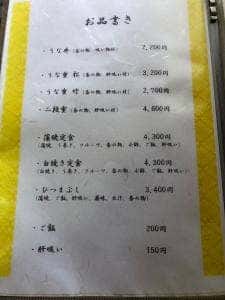 お品書き
・うな丼（香の物、吸い物付） 2,200円
・うな重 松（香の物、肝吸い付） 3,200円
・うな重 竹（香の物、肝吸い付） 2,700円
・二段重（香の物、肝吸い付） 4,600円
・蒲焼定食 4,300円
（蒲焼、うまき、フルーツ、香の物、小鉢、ご飯、肝吸い）
・白焼き定食 4,300円
（白焼き、うまき、フルーツ、香の物、小鉢、ご飯、肝吸い）
・ひつまぶし 3,400円
（蒲焼、ご飯、肝吸い、薬味、出汁、香の物）
・ご飯 200円
・肝吸い 150円